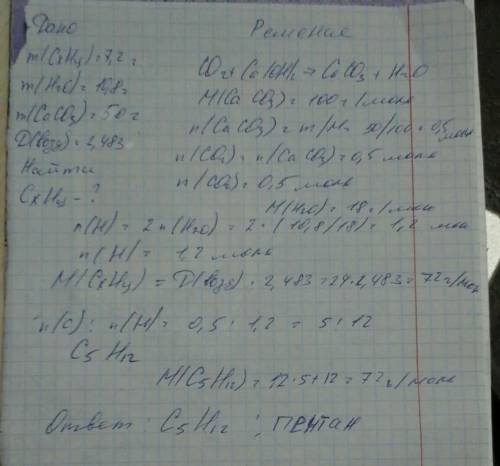 Дано
Решение
m(CxHy) = 7,2 г
m(H2O) = 10,8 г
m(CaCO3) = 50 г
D(возд) = 2,483
Найти
CxHy - ?
CO2 + Ca(OH)2 → CaCO3 + H2O
M(CaCO3) = 100 г/моль
n(CaCO3) = m/M = 50/100 = 0,5 моль
n(CO2) = n(CaCO3) = 0,5 моль
n(CO2) = 0,5 моль
M(H2O) = 18 г/моль
n(H) = 2 n(H2O) = 2 · (10,8/18) = 1,2 моль
n(H) = 1,2 моль
M(CxHy) = D(возд) · 2,483 = 29 · 2,483 = 72 г/моль
n(C) : n(H) = 0,5 : 1,2 = 5 : 12
C5H12
M(C5H12) = 12 · 5 + 12 = 72 г/моль
Ответ : C5H12 ; ПЕНТАН